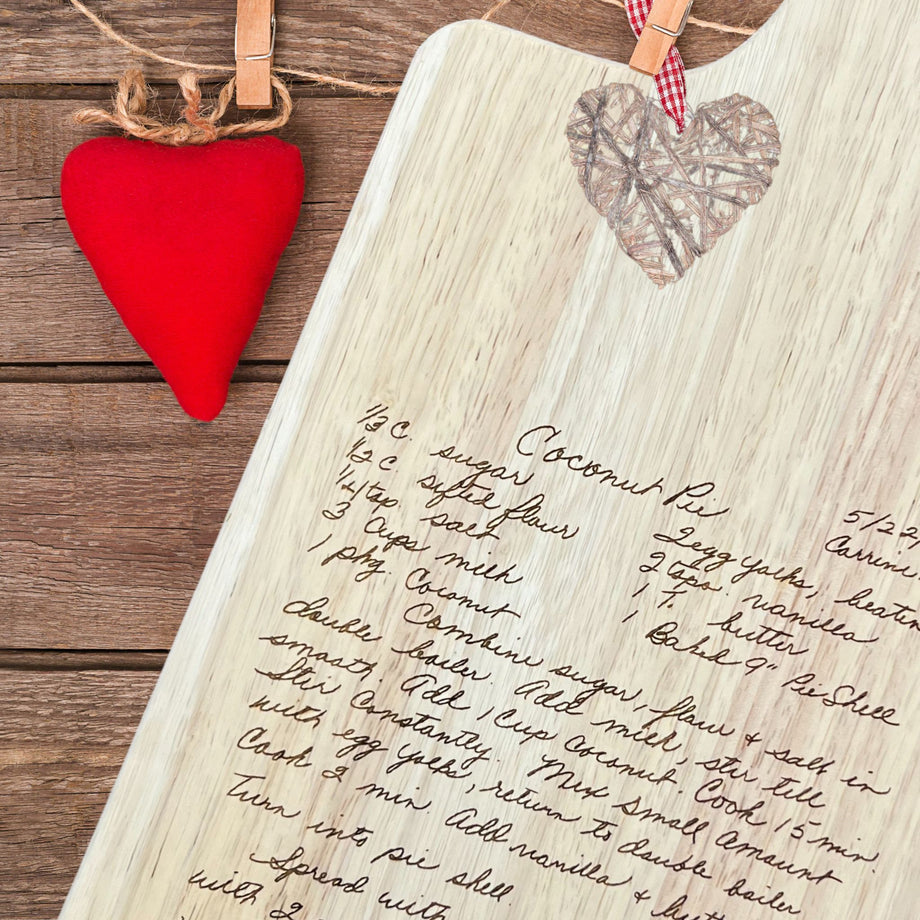 Coconut Pie
5/22/
Corrine
1/3 c. sugar
1/2 c sifted flour
1/4 tsp. salt
3 cups milk
1 pkg. Coconut
2 egg yolks, beaten
2 tsps. vanilla
1 T. butter
1 Baked 9" Pie Shell
Combine sugar, flour & salt in
double boiler. Add milk, stir till
smooth. Add 1 cup coconut. Cook 15 min.
Stir constantly. Mix small amount
with egg yolks, return to double boiler
Cook 2 min. Add vanilla & butt
Turn into pie shell.
Spread with
with 2